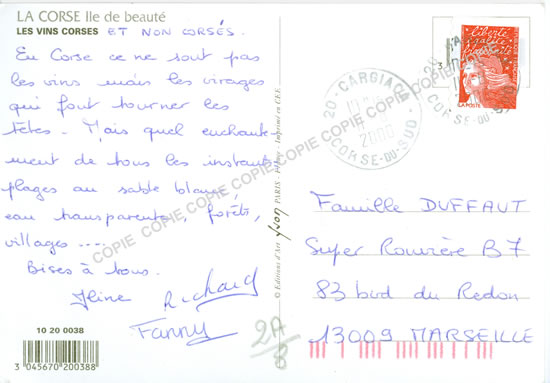 LA CORSE Ile de beauté
LES VINS CORSES ET NON CORSÉS.
En Corse ce ne sont pas
les vins mais les virages
qui font tourner les
têtes. Mais quel enchante
ment de tous les instants
plages au sable blanc,
eau transparente, forêts,
villages ....
Bises à tous.
Richard
Fanny
10 20 0038
3 045670 200388
© Editions d'Art yvon PARIS
2A
Liberté
20 - CARGIAC
2000
CORSE-DU-SUD
LA POSTE
Famille DUFFAUT
Super Rouvière B7
83 bvd du Redon
13009 MARSEILLE
COPIE COPIE COPIE COPIE COPIE COPIE COPIE COPIE